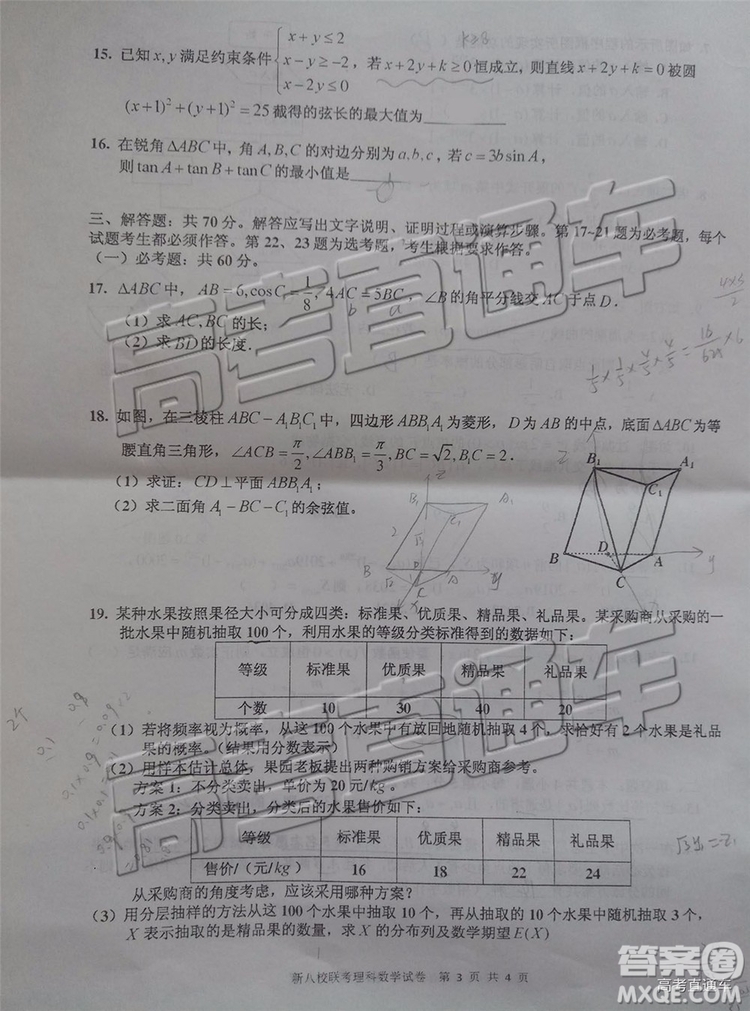 15. 已知 x, y 满足约束条件 { x+y≤2
x−y≥−2 ，若 x+2y+k≥0 恒成立，则直线 x+2y+k=0 被圆
x−2y≤0
k≥3
(x+1)²+(y+1)²=25 截得的弦长的最大值为
16. 在锐角 ΔABC 中，角 A, B, C 的对边分别为 a, b, c，若 c=3b sin A，
则 tan A + tan B + tan C 的最小值是
三、解答题：共 70 分。解答应写出文字说明、证明过程或演算步骤。第 17~21 题为必考题，每个
试题考生都必须作答。第 22、23 题为选考题，考生根据要求作答。
（一）必考题：共 60 分。
17. ΔABC 中， AB=6, cos C=1/8, 4AC=5BC，∠B 的角平分线交 AC 于点 D.
b a
（1）求 AC, BC 的长；
（2）求 BD 的长度.
1/5 × 1/5 × 4/5 × 4/5 = 16/625 × 6
4×3/2
18. 如图，在三棱柱 ABC−A₁B₁C₁ 中，四边形 ABB₁A₁ 为菱形，D 为 AB 的中点，底面 ΔABC 为等
腰直角三角形，∠ACB=π/2, ∠ABB₁=π/3, BC=√2, B₁C=2 .
（1）求证：CD⊥平面 ABB₁A₁；
（2）求二面角 A₁−BC−C₁ 的余弦值.
B₁ A₁
C₁
B D A
C
19. 某种水果按照果径大小可分成四类：标准果、优质果、精品果、礼品果。某采购商从采购的一
批水果中随机抽取 100 个，利用水果的等级分类标准得到的数据如下：
等级 标准果 优质果 精品果 礼品果
个数 10 30 40 20
（1）若将频率视为概率，从这 100 个水果中有放回地随机抽取 4 个，求恰好有 2 个水果是礼品
果的概率。（结果用分数表示）
（2）用样本估计总体，果园老板提出两种购销方案给采购商参考。
方案 1：不分类卖出，单价为 20 元/kg；
方案 2：分类卖出，分类后的水果售价如下：
等级 标准果 优质果 精品果 礼品果
售价/（元/kg） 16 18 22 24
从采购商的角度考虑，应该采用哪种方案？
（3）用分层抽样的方法从这 100 个水果中抽取 10 个，再从抽取的 10 个水果中随机抽取 3 个，
X 表示抽取的是精品果的数量，求 X 的分布列及数学期望 E(X)
新八校联考理科数学试卷 第 3 页 共 4 页
高考直通车
答案圈
高考直通车
MXQE.COM